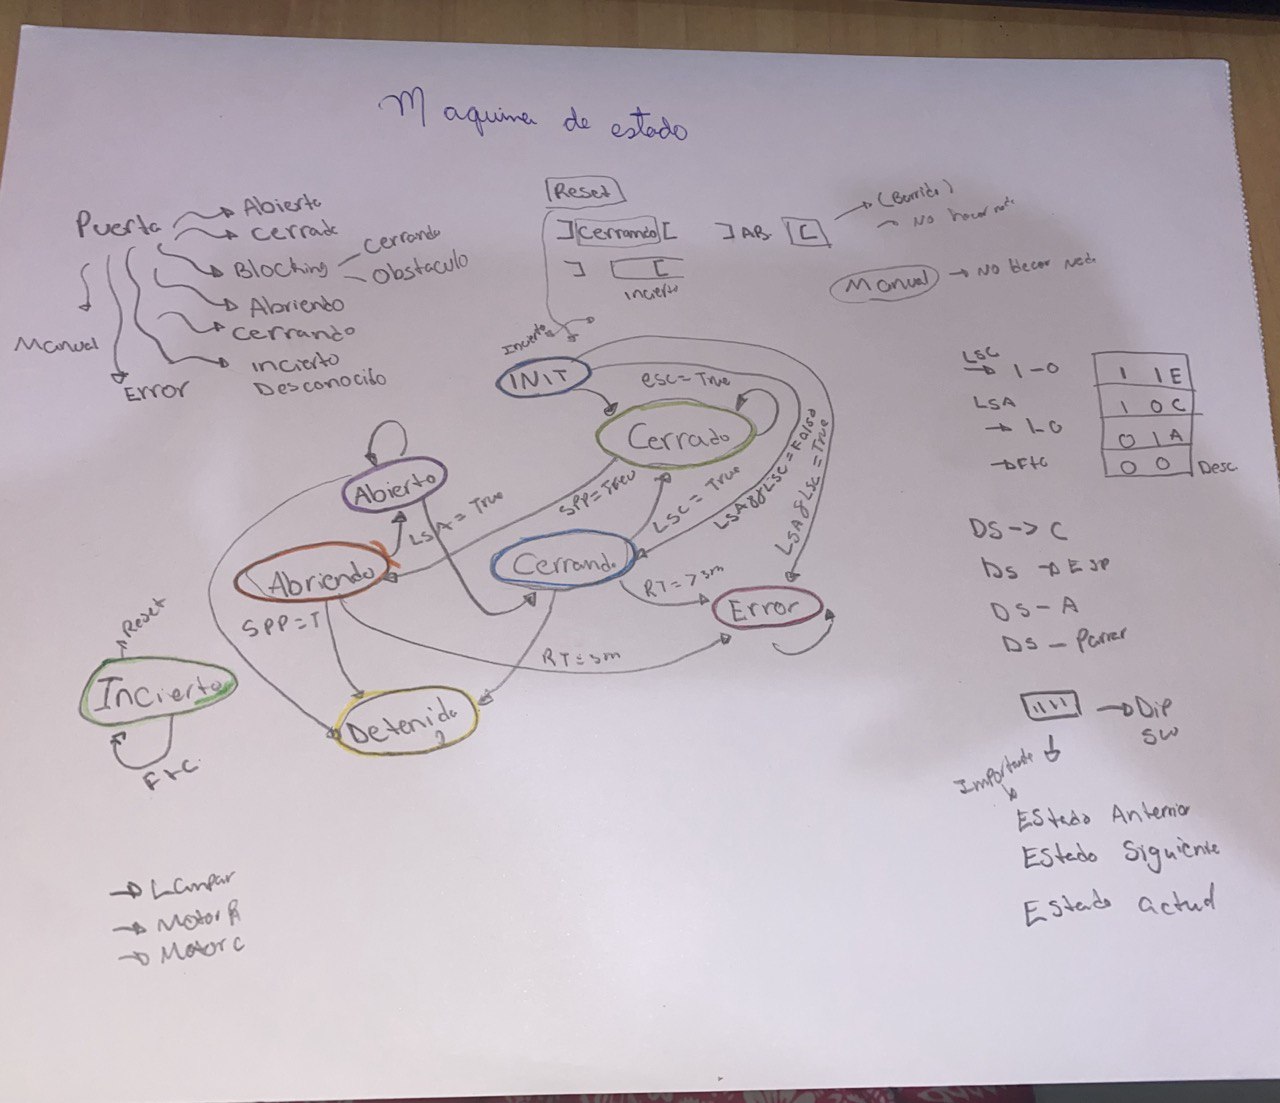 Maquina de estado
Puerta
Abierto
cerrado
Blocking
cerrando
Obstaculo
Abriendo
cerrando
incierto
Desconocido
Manual
Error
[Reset]
][Cerrando][
]AB [C]
(Barrido)
No hacer nada
] [
incierto
Manual → No hacer nada
Incierto
INIT
esc = True
Cerrado
Abierto
LSA = True
SPP = True
LSC = True
LSA && LSC = False
LSA && LSC = True
Abriendo
Cerrando
RT = 7 sm
Error
SPP = T
RT = 5m
Detenida
Reset
Incierto
FtC
LSC → 1-0
LSA → 1-0
→ FtC
1 1E
1 0C
0 1A
0 0 Desc
DS -> C
DS → ESP
DS - A
DS - Parrar
→ Dip
SW
Importante
Estado Anterior
Estado Siguiente
Estado actual
→ Lampar
→ Motor A
→ Motor C